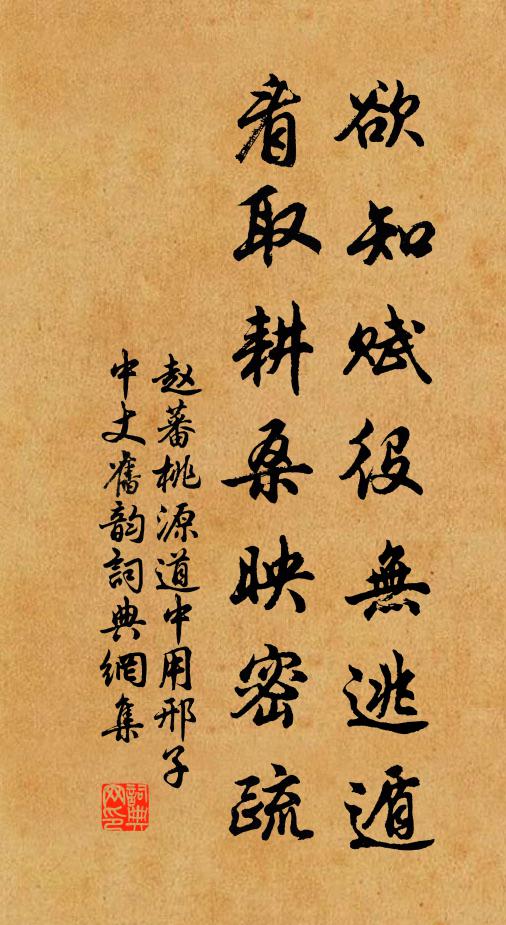 欲知賦役無逃遁
看取耕桑映密疏
赵蕃桃源道中用邢子
中丈舊韵詞典網集
詞典網印